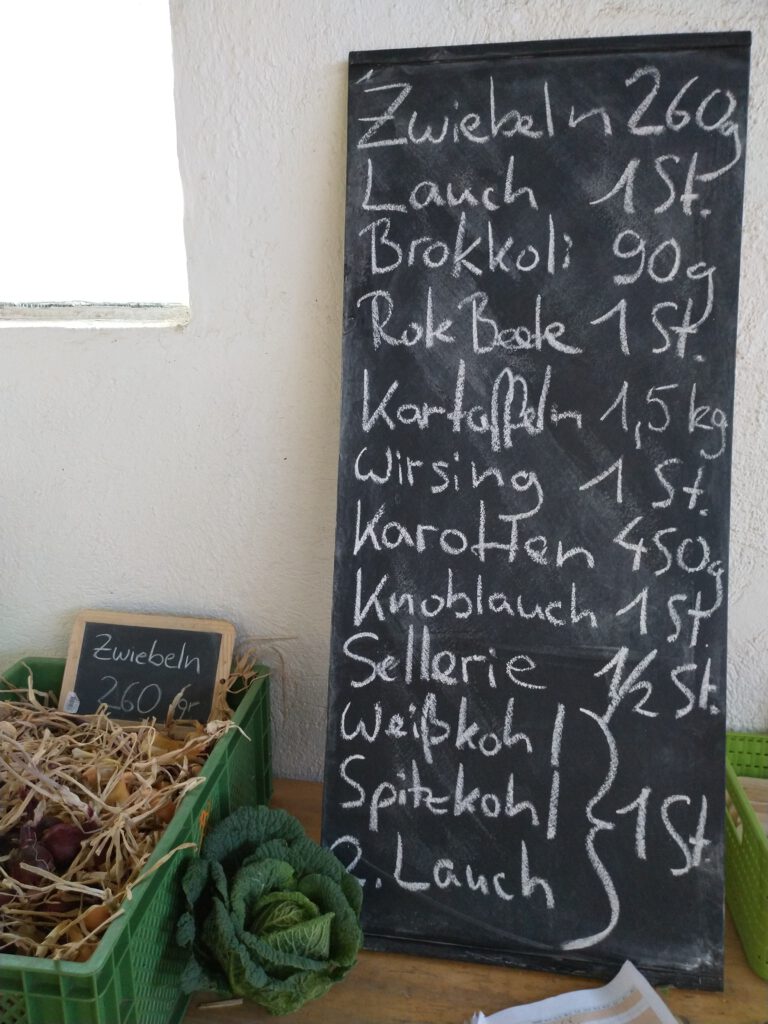 Zwiebeln 260g
Lauch 1 St.
Brokkoli 90g
Rok Beete 1 St.
Kartoffeln 1,5 kg
Wirsing 1 St.
Karotten 450g
Knoblauch 1 St.
Sellerie 1/2 St.
Weißkohl
Spitzkohl
2. Lauch
} 1 St.
Zwiebeln
260 gr